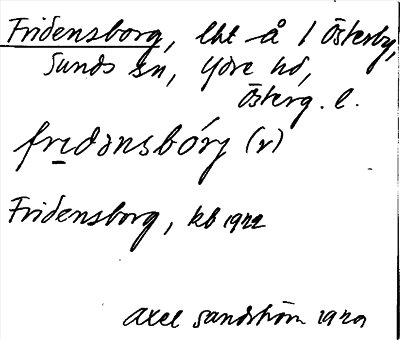 Fridensborg, lht å 1 Österby,
Sunds sn, Ydre hd,
Österg. l.
frɪdənsbórj (v)
Fridensborg, kb 1922
Axel Sandström 1929